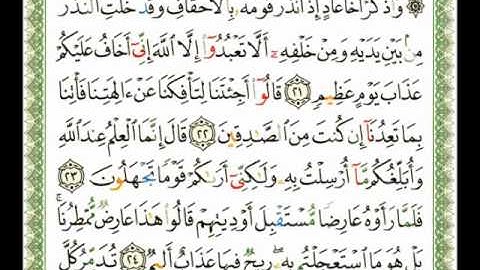 ۞ وَاذْكُرْ أَخَا عَادٍ إِذْ أَنذَرَ قَوْمَهُ بِالْأَحْقَافِ وَقَدْ خَلَتِ النُّذُرُ
مِن بَيْنِ يَدَيْهِ وَمِنْ خَلْفِهِ أَلَّا تَعْبُدُوا إِلَّا اللَّهَ إِنِّي أَخَافُ عَلَيْكُمْ
عَذَابَ يَوْمٍ عَظِيمٍ ٢١ قَالُوا أَجِئْتَنَا لِتَأْفِكَنَا عَنْ آلِهَتِنَا فَأْتِنَا
بِمَا تَعِدُنَا إِن كُنتَ مِنَ الصَّادِقِينَ ٢٢ قَالَ إِنَّمَا الْعِلْمُ عِندَ اللَّهِ
وَأُبَلِّغُكُم مَّا أُرْسِلْتُ بِهِ وَلَٰكِنِّي أَرَاكُمْ قَوْمًا تَجْهَلُونَ ٢٣
فَلَمَّا رَأَوْهُ عَارِضًا مُّسْتَقْبِلَ أَوْدِيَتِهِمْ قَالُوا هَٰذَا عَارِضٌ مُّمْطِرُنَا ۚ
بَلْ هُوَ مَا اسْتَعْجَلْتُم بِهِ ۖ رِيحٌ فِيهَا عَذَابٌ أَلِيمٌ ٢٤ تُدَمِّرُ كُلَّ